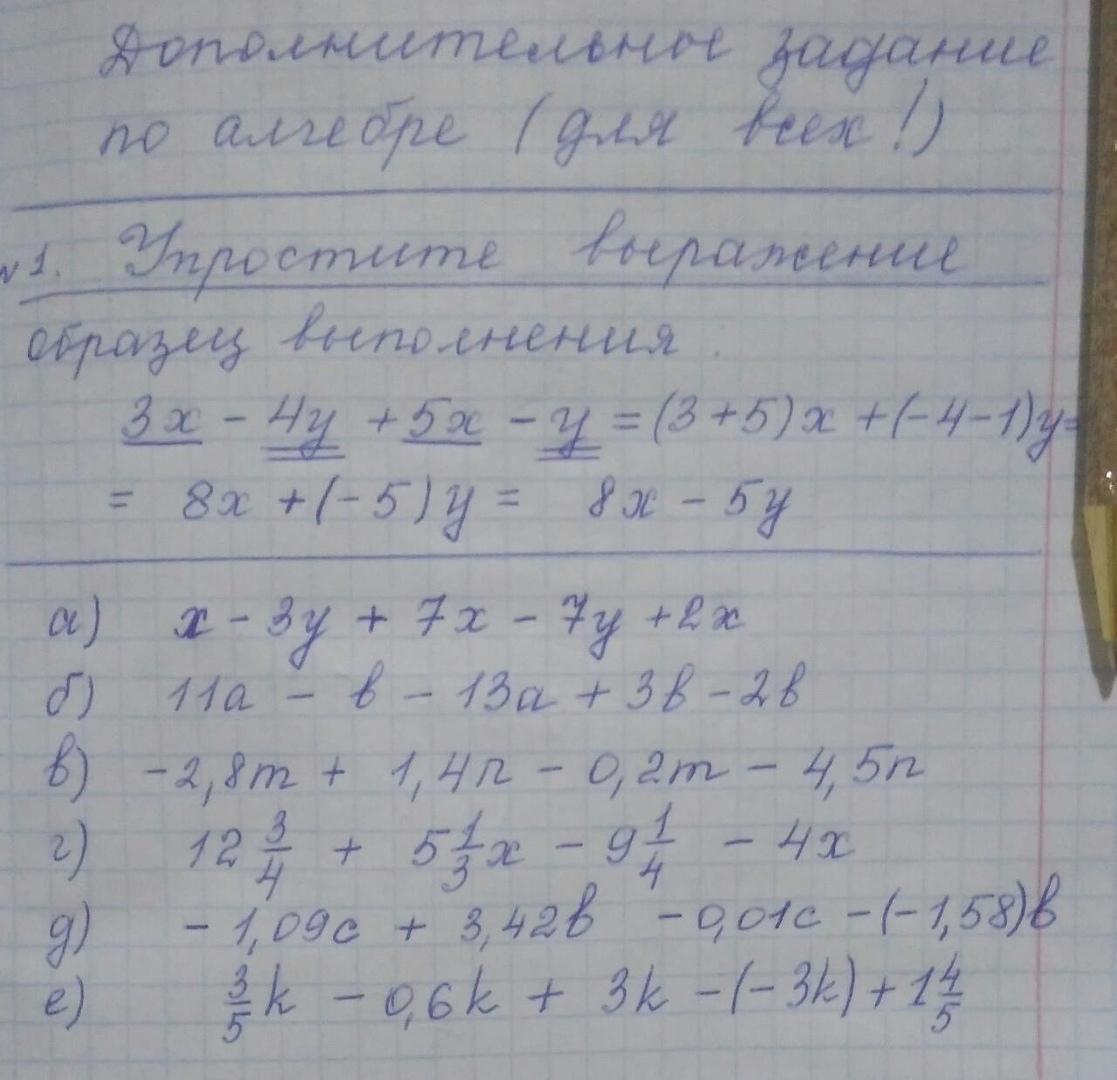 Дополнительное задание
по алгебре (для всех!)
№1. Упростите выражение
образец выполнения.
3x - 4y + 5x - y = (3+5)x + (-4-1)y=
= 8x + (-5)y = 8x - 5y
а) x - 3y + 7x - 7y + 2x
б) 11a - в - 13a + 3в - 2в
в) -2,8m + 1,4n - 0,2m - 4,5n
г) 12 3/4 + 5 1/3 x - 9 1/4 - 4x
д) - 1,09c + 3,42в - 0,01c - (-1,58)в
е) 3/5 k - 0,6k + 3k - (-3k) + 1 4/5